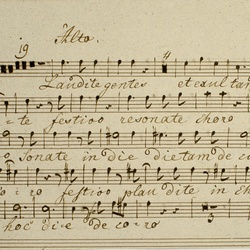 Alto.
19 4
Laudite gentes et exul tan
te festivo resonate choro
sonate in die dietam de co
ro festivo plau dite in ch
hoc di e de co ro